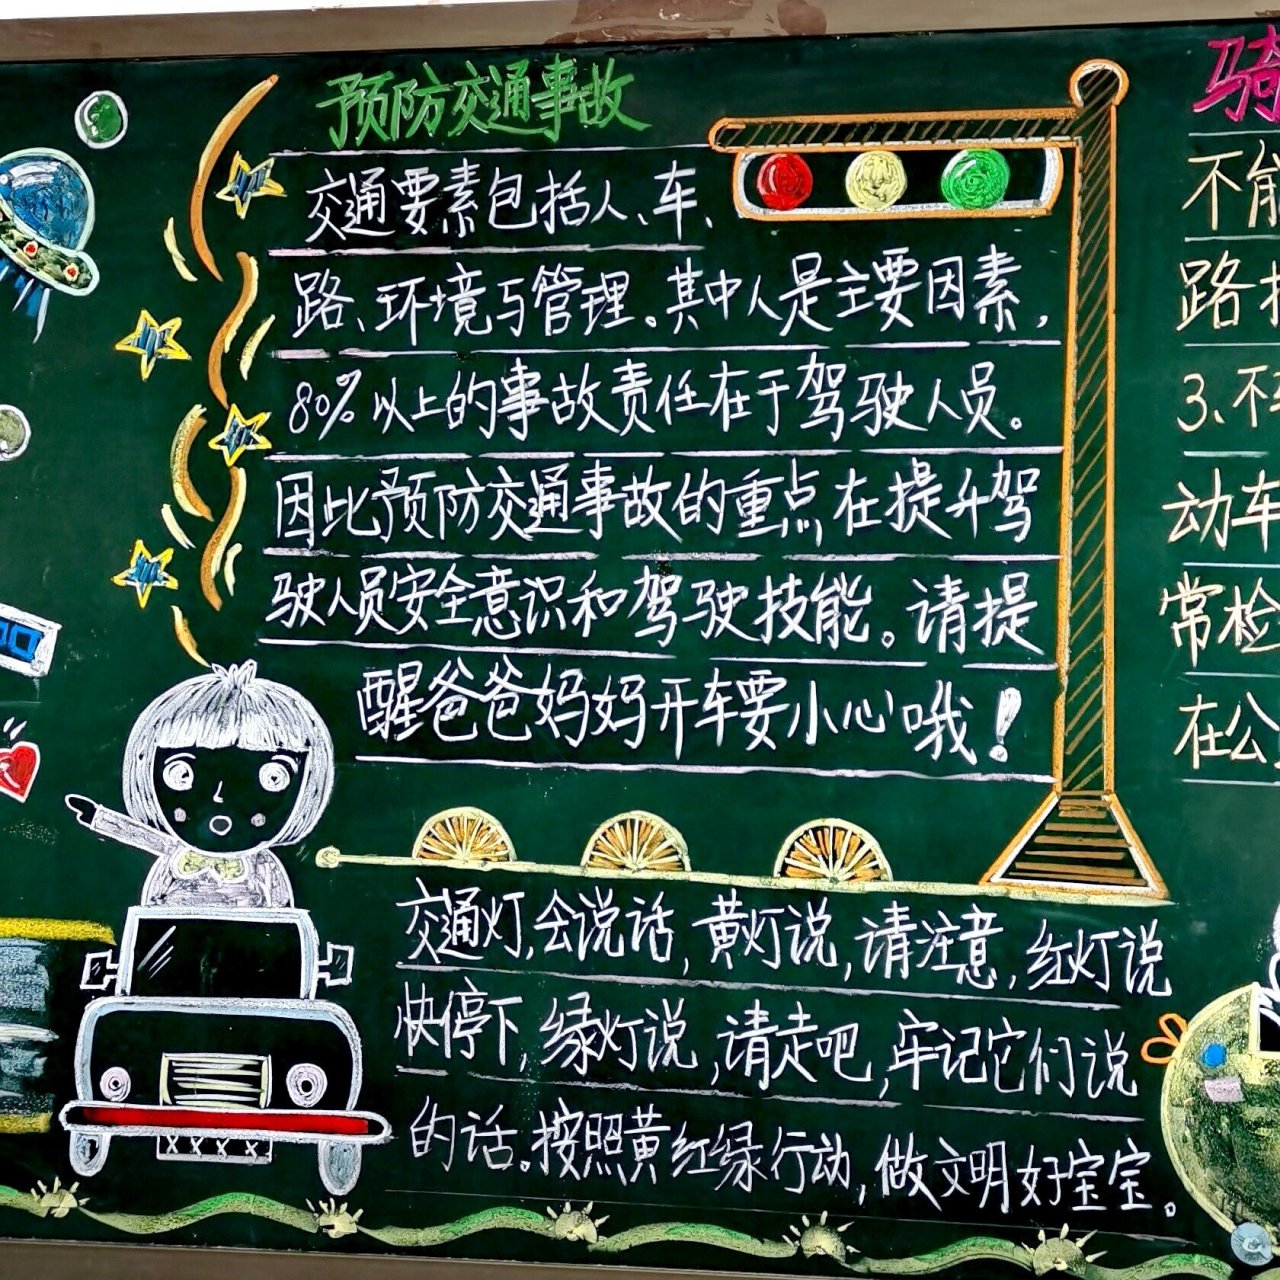 预防交通事故
交通要素包括人、车、
路、环境与管理。其中人是主要因素，
80%以上的事故责任在于驾驶人员。
因此预防交通事故的重点在提升驾
驶人员安全意识和驾驶技能。请提
醒爸爸妈妈开车要小心哦！
交通灯,会说话,黄灯说,请注意,红灯说
快停下,绿灯说,请走吧,牢记它们说
的话。按照黄红绿行动,做文明好宝宝。
骑
不能
路
3、不
动车
常检
在公